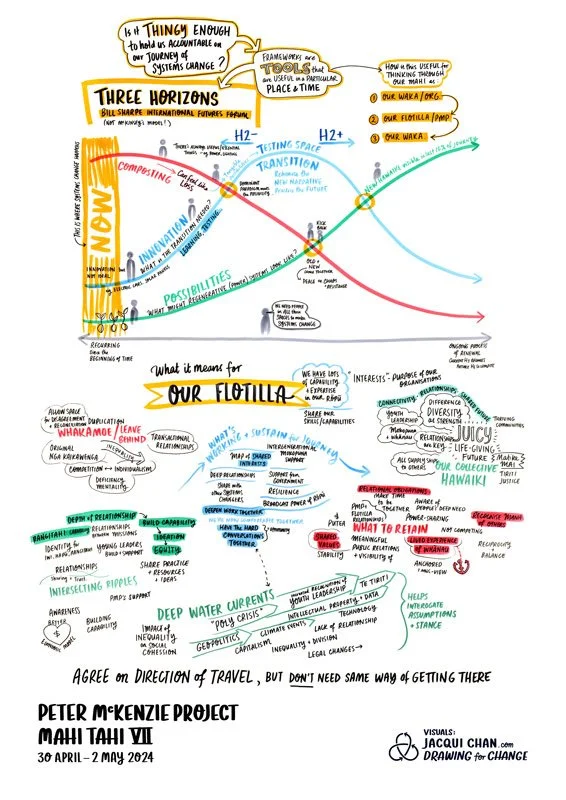 Is it THINGY ENOUGH
to hold us ACCOUNTABLE on
our JOURNEY of
SYSTEMS CHANGE?
FRAMEWORKS are
TOOLS that
are USEFUL in a PARTICULAR
PLACE & TIME
HOW is this USEFUL for
THINKING THROUGH
OUR MAHI as
1 OUR WAKA/ORG
2 OUR FLOTILLA/PMP
3 OUR WAKA
THREE HORIZONS
BILL SHARPE INTERNATIONAL FUTURES FORUM
(NOT McKINSEY's MODEL!)
H2-
H2+
TESTING SPACE
TRANSITION
THIS IS WHERE SYSTEMS CHANGE HAPPENS
NOW
COMPOSTING
Can feel like
LOSS
DOMINANT
PARADIGM MEETS
the POSSIBILITY
Rehearse the
NEW NARRATIVE
Practice the FUTURE
INNOVATION
WHAT is the TRANSITION NEEDED?
LEARNING, TESTING...
INNOVATION but
NOT IDEAL
POSSIBILITIES
WHAT MIGHT REGENERATIVE (POWER) SYSTEMS LOOK LIKE?
KICK
BACK
OLD &
NEW
COME TOGETHER
PEACE or BUMPS
+ RESISTANCE
WE NEED PEOPLE
in ALL THESE
SPACES to make
SYSTEMS CHANGE
RECURRING
SINCE the
BEGINNINGS of TIME
ONGOING PROCESS
of RENEWAL
What it means for
OUR FLOTILLA
WE HAVE LOTS
of CAPABILITY
+ EXPERTISE
in OUR RŌPŪ
SHARE OUR
SKILLS/CAPABILITIES
"INTERESTS" - PURPOSE of OUR
ORGANISATIONS
ALLOW SPACE
for DISAGREEMENT
+ RECONCILIATION
DUPLICATION
WHAKAMOE / LEAVE
BEHIND
TRANSACTIONAL
RELATIONSHIPS
ORIGINAL
NGA KAIKAWENGA
INEQUALITY
COMPETITION ↔ INDIVIDUALISM
DEFICIENCY
MENTALITY
WHAT'S
WORKING + SUSTAIN for JOURNEY
MAP of SHARED
INTERESTS
INTERGENERATIONAL
MOKOPUNA
SUPPORT
DEEP RELATIONSHIPS
SUPPORT from
GOVERNMENT
SHARE with
OTHER SYSTEMS
CHANGERS
RESILIENCE
BROADCAST POWER of RŌPŪ
DEEPEN WORK TOGETHER
HAVE the HARD
CONVERSATIONS
TOGETHER
CONNECTIVITY - RELATIONSHIPS - SHARED FUTURE
DIFFERENCE
DIVERSITY
as STRENGTH
YOUTH
LEADERSHIP
MOKOPUNA
+ WHĀNAU
RELATIONSHIPS
are KEY
THRIVING
COMMUNITIES
JUICY
LIFE-GIVING
FUTURE
ALL SUPER STARS
to OTHERS
OUR COLLECTIVE
HAWAIKI
MATIKE
MAI
TIRITI
JUSTICE
DEPTH of RELATIONSHIP
BUILD CAPABILITY
RANGATAHI LEAD
RELATIONSHIPS
BETWEEN MISSIONS
IDEATION
EQUITY
IDENTITY for
IWI, HAPŪ, RANGATAHI
YOUNG LEADERS
BUILD + SUPPORT
RELATIONSHIPS
SHARING + TRUST
SHARE PRACTICE
+ RESOURCES
+ IDEAS
INTERSECTING RIPPLES
PMP's SUPPORT
AWARENESS
BETTER
$
ECONOMIC MODEL
BUILDING
CAPABILITY
IMPACT of
INEQUALITY
on SOCIAL
COHESION
RELATIONAL OBLIGATIONS
MAKE TIME
to be
TOGETHER
AWARE of
PEOPLE'S DEEP NEED
RECOGNISE MANA
of OTHERS
PMP's
FLOTILLA
RELATIONSHIPS
POWER-SHARING
WHAT to RETAIN
NOT COMPETING
$ PUTEA
SHARED
VALUES
STABILITY
MEANINGFUL
PUBLIC RELATIONS
+ VISIBILITY of
LIVED EXPERIENCE
of WHĀNAU
RECIPROCITY
BALANCE
ANCHORED
DEEP WATER CURRENTS
"POLY CRISIS"
YOUTH LEADERSHIP
TE TIRITI
INTELLECTUAL PROPERTY + DATA
TECHNOLOGY
GEOPOLITICS
CLIMATE EVENTS
LACK of RELATIONSHIP
CAPITALISM
INEQUALITY + DIVISION
LEGAL CHANGES →
HELPS
INTEROGATE
ASSUMPTIONS
+ STANCE
AGREE on DIRECTION of TRAVEL, BUT DON'T NEED SAME WAY of GETTING THERE
PETER McKENZIE PROJECT
MAHI TAHI VII
30 APRIL - 2 MAY 2024
VISUALS:
JACQUI CHAN.com
DRAWING for CHANGE